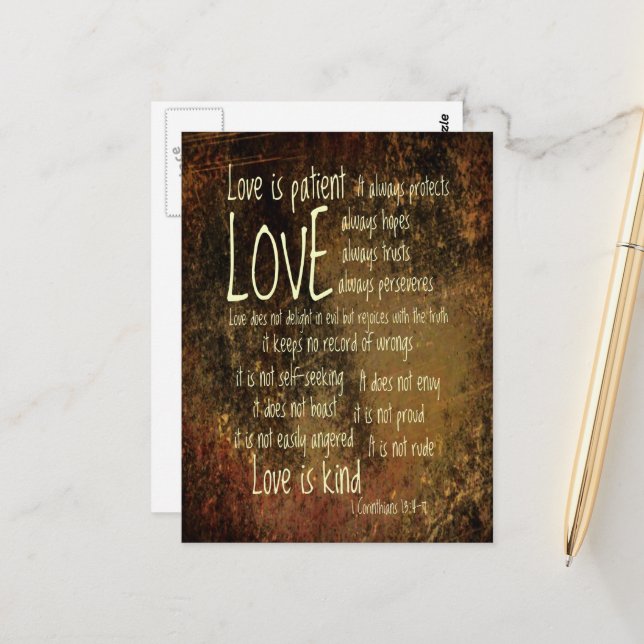 Love is patient
It always protects
LOVE
always hopes
always trusts
always perseveres
Love does not delight in evil but rejoices with the truth
it keeps no record of wrongs
it is not self-seeking
It does not envy
it does not boast
it is not proud
it is not easily angered
It is not rude
Love is kind
1 Corinthians 13:4-7